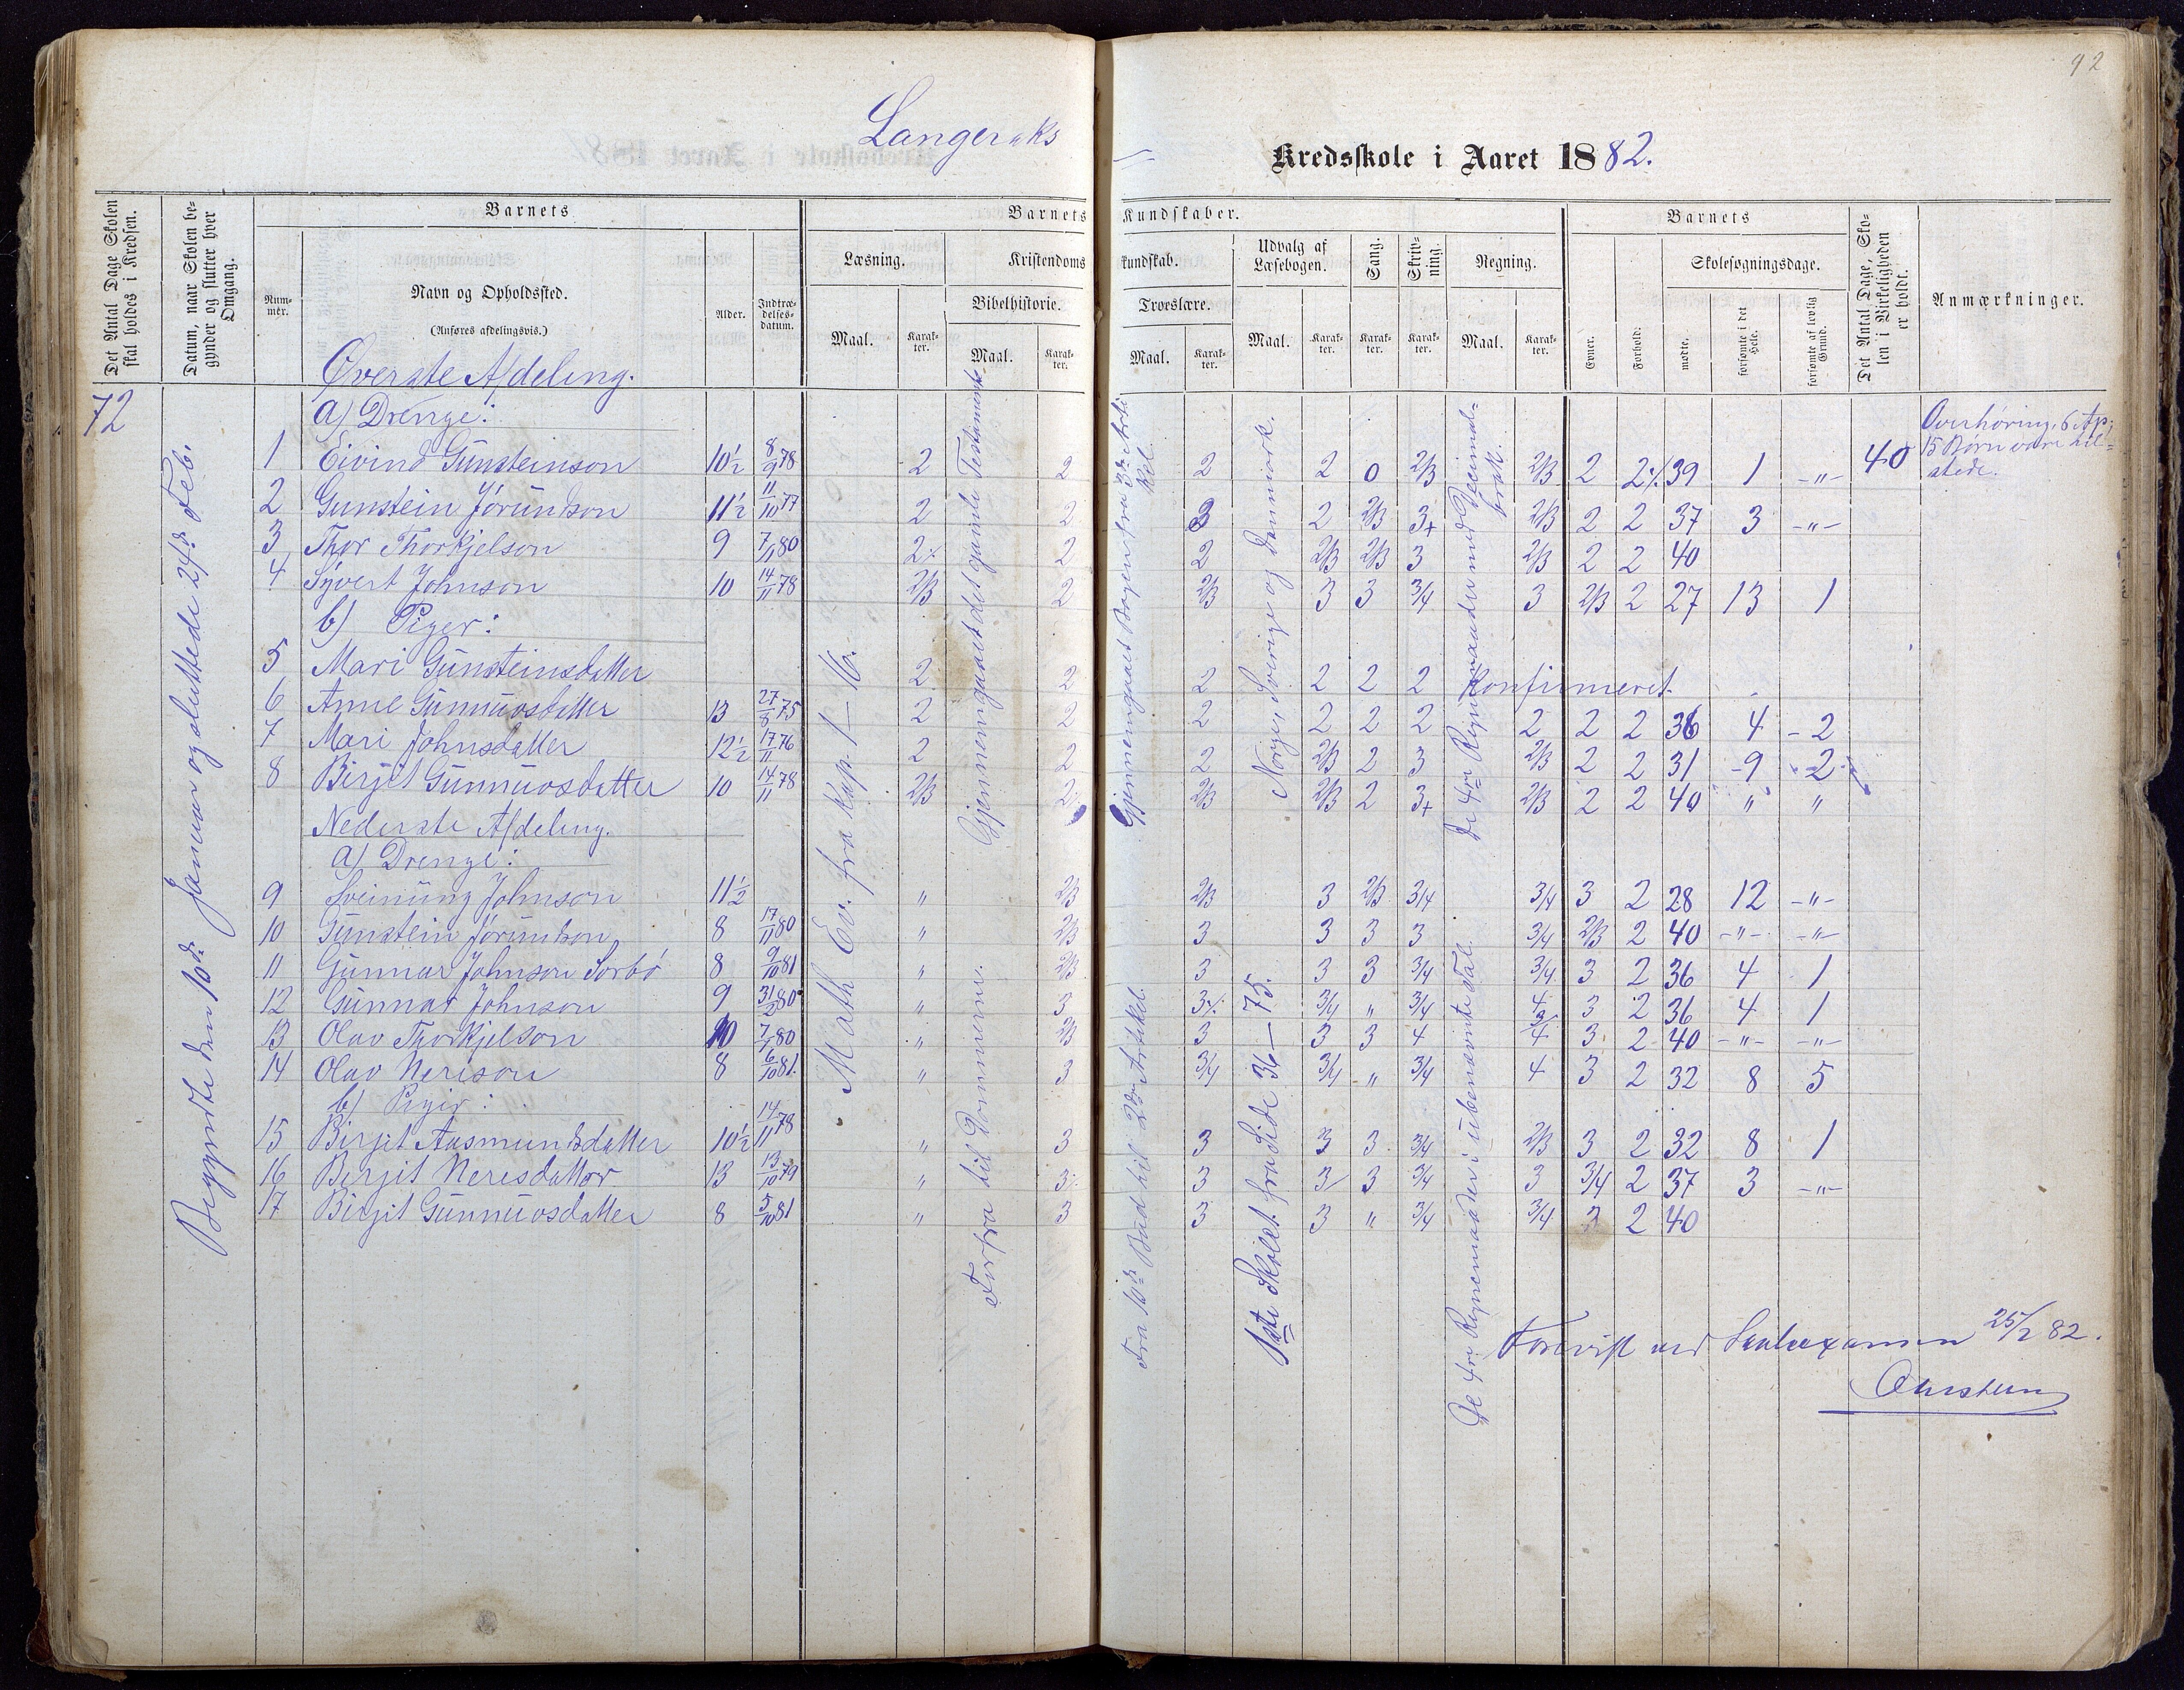 92
Langeraks
Kredsskole i Aaret 1882.
Det Antal Dage Skolen skal holdes i Kredsen.
Datum, naar Skolen begynder og slutter hver Omgang.
Barnets
Barnets Kundskaber.
Barnets
Det Antal Dage, Skolen i Virkeligheden er holdt.
Anmærkninger.
Nummer.
Navn og Opholdssted.
(Anføres afdelingsvis.)
Alder.
Indtrædelsesdatum.
Læsning.
Kristendomskundskab.
Udvalg af Læsebogen.
Sang.
Skrivning.
Regning.
Evner.
Forhold.
Skolesøgningsdage.
Bibelhistorie.
Troeslære.
Maal. Karakter. Maal. Karakter. Maal. Karakter. Maal. Karakter. Karakter. Karakter. Maal. Karakter.
mødte. forsømte i det Hele. forsømte af lovlig Grund.
Øverste Afdeling.
72
a) Drenge:
1 Eivind Gunsteinson 10½ 8/9 78 2 2 2 2 0 2/3 2/3 2 2% 39 1 -"- 40
2 Gunstein Jørundson 11½ 11/10 77 2 2 3 2 2/3 3+ 2/3 2 2 37 3 -"-
3 Thor Thorkjelson 9 7/11 80 2% 2 2 2/3 2/3 3 2/3 2 2 40
4 Syvert Johnson 10 14/11 78 2/3 2 2/3 3 3 3/4 3 2/3 2 27 13 1
b) Piger:
5 Mari Gunsteinsdatter 2 2 2 2 2 2 Konfirmeret.
6 Anne Gunnuvsdatter 13 27/8 75 2 2 2 2 2 2 2 2 2 36 4 - 2
7 Mari Johnsdatter 12½ 17/11 76 2 2 2 2/3 2 3 2/3 2 2 31 9 2
8 Birjit Gunnuvsdatter 10 14/11 78 2/3 2 2/3 2/3 2 3+ 2/3 2 2 40 " "
Nederste Afdeling.
a) Drenge:
9 Sveinung Johnson 11½ " 2/3 2/3 3 2/3 3/4 3/4 3 2 28 12 -"-
10 Gunstein Jørundson 8 17/11 80 " 2/3 3 3 3 3 3/4 2/3 2 40 -"- -"-
11 Gunnar Johnson Sorbø 8 9/10 81 " 2/3 3 3 3 3/4 3/4 3 2 36 4 1
12 Gunnar Johnson 9 31/2 80 " 3 3% 3/4 " 3/4 4 3 2 36 4 1
13 Olav Thorkjelson 10 7/11 80 " 2/3 3 3 3 4 3/4 3 2 40 -"- -"-
14 Olav Nerison 8 6/10 81. " 3 3/4 3/4 " 3/4 4 3 2 32 8 5
b) Piger:
15 Birjit Aasmundsdatter 10½ 14/11 78 " 3 3 3 3 3/4 2/3 3 2 32 8 1
16 Birjit Nerisdatter 13 13/10 79 " 3 3 3 3 3/4 3 3/4 2 37 3 -"-
17 Birjit Gunnuvsdatter 8 5/10 81 " 3 3 3 " 3/4 3/4 3 2 40
Begyndte den 10de Januar og sluttede 24de Feb.
Math Ev. fra Kap. 1-16.
Gjennemgaaet det gamle Testamente
Forfra til Dommerne.
Gjennemgaaet Bogen fra 3die Artikel.
Fra 10de Bud til 2den Artikel.
Norge, Sverige og Danmark.
1ste Skolet. fra Side 36-75.
De 4re Regnemaader med Decimalbrøk.
De 4re Regnemaader i ubenævnte Tal.
Overhøring. 6 Ap;
15 Børn vare tilstede.
Forevist ved Skoleexamen 25/2 82.